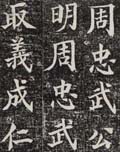 周忠武公
明周忠武
取義成仁